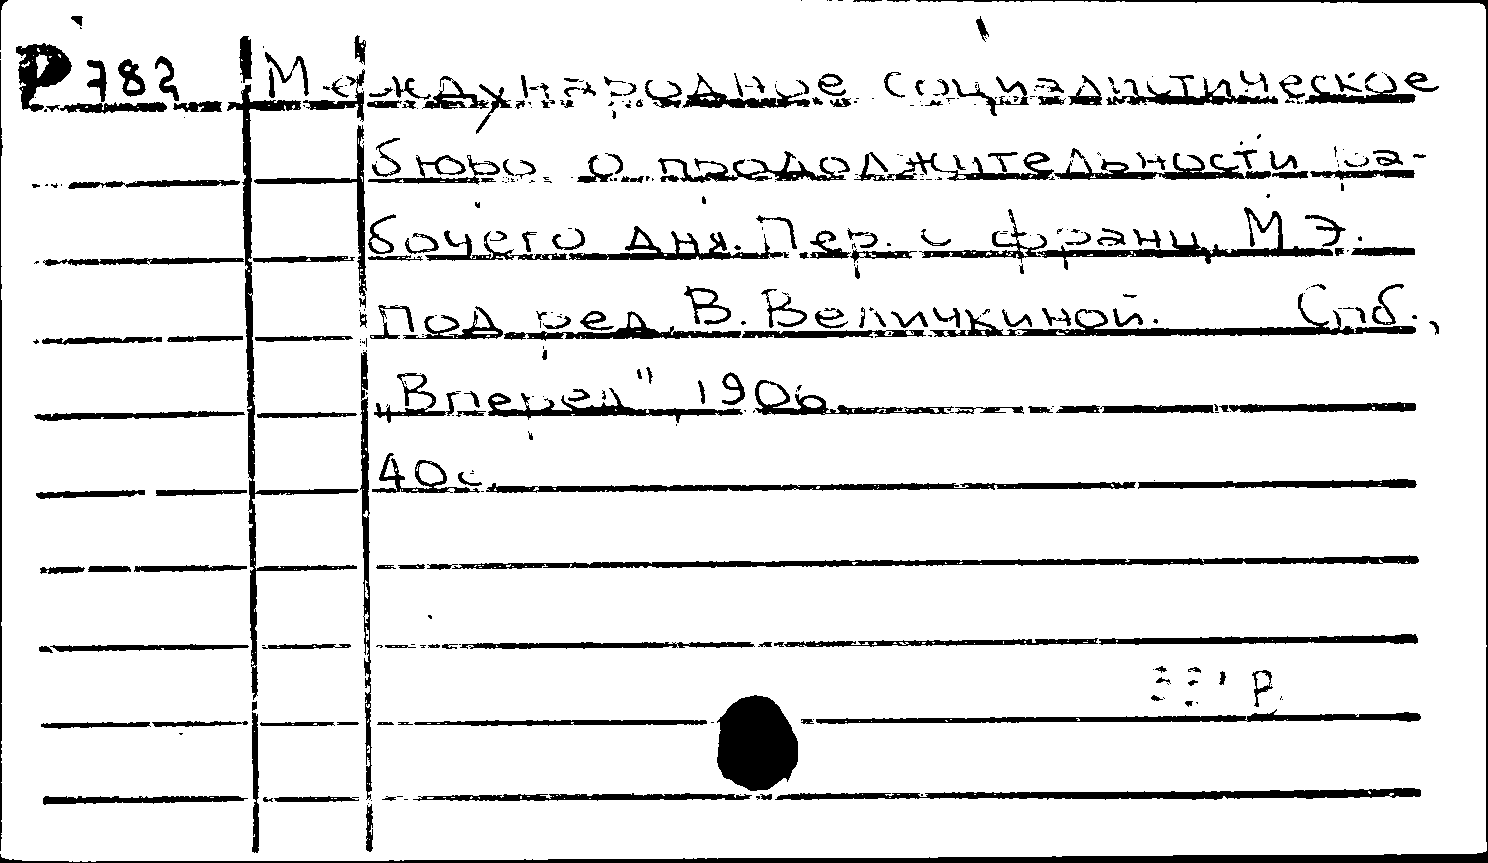 Р 782 Международное социалистическое
бюро о продолжительности ра-
бочего дня. Пер. с франц. М.Э.
Под ред. В. Величкиной. Спб.,
„Вперед", 1906.
40 с.